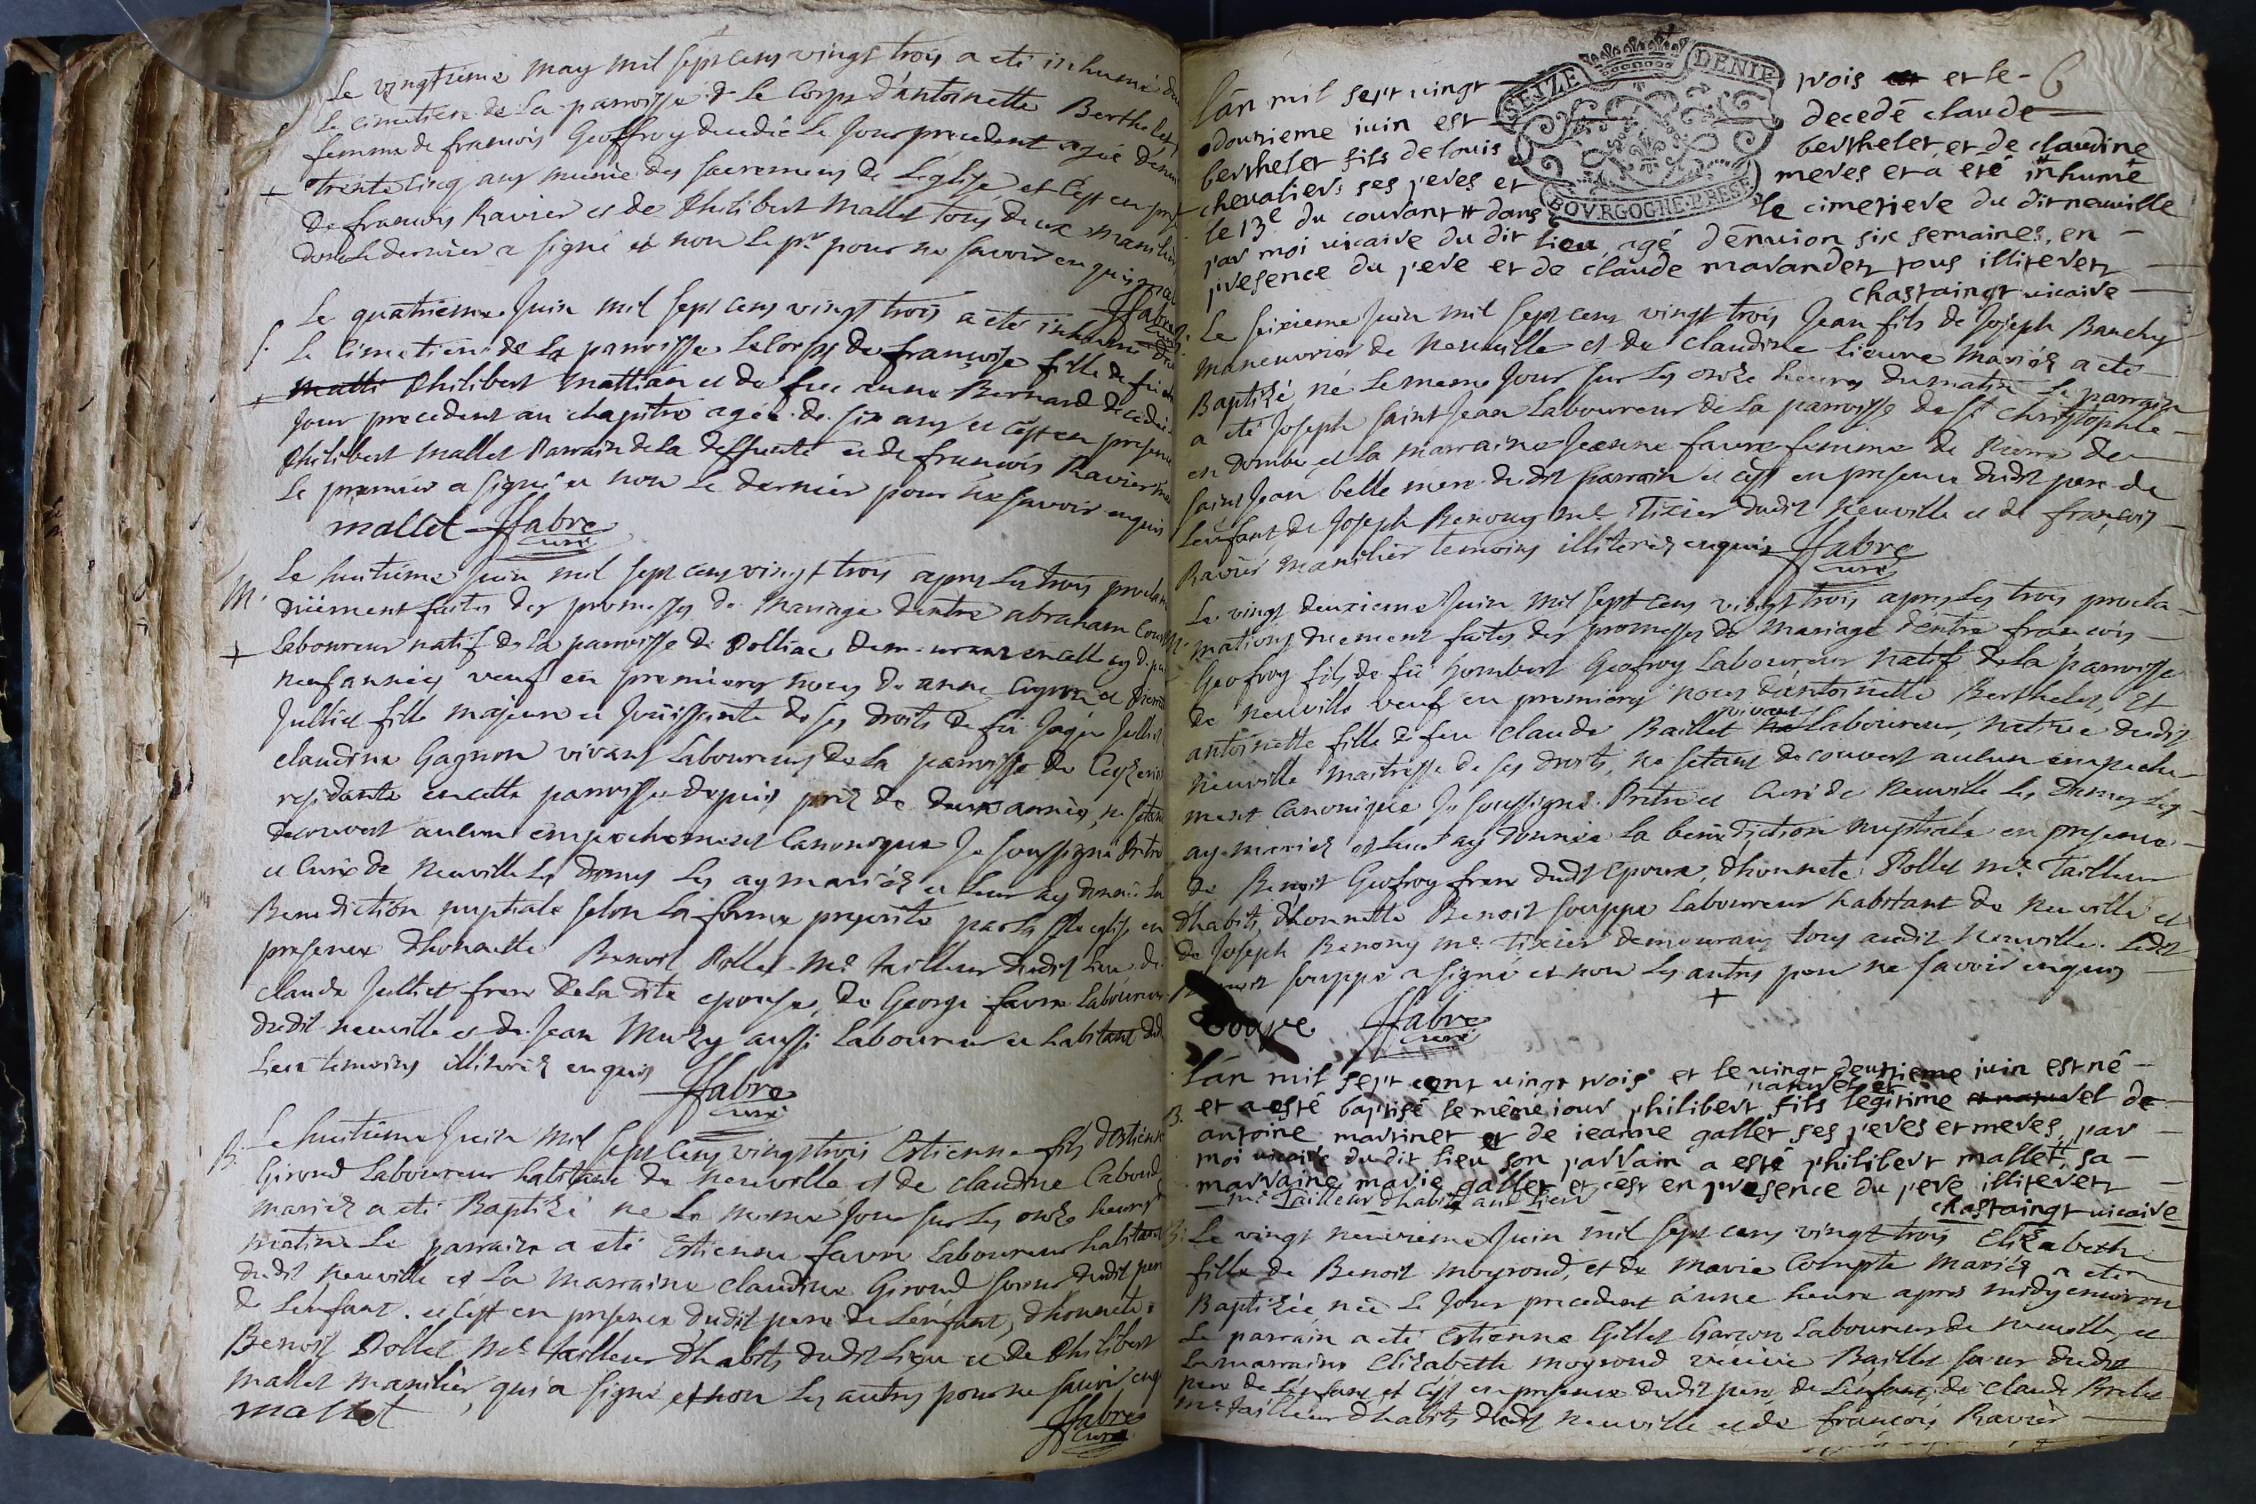 Le vingtieme may mil sept cens vingt trois a eté inhumé dans
le cimetiere de la parroisse le corps d'antoinette Berthelet
S.
femme de francois Geoffroy decedée le jour precedent agée d'env
+
trente cinq ans munie des sacremens de L'eglise, et c'est en pres
de francois Ravier et de Philibert Mallet tous deux manilier
dont le dernier a signé et non le pr. pour ne savoir enquis mal
JFabre
Le quatrieme Juin mil sept cens vingt trois a eté inhumé dan
S.
le cimetiere de la parroisse le corps de françoise fille de feu
+
matti Philibert mattian et de feu anne Bernard decedée
Jour precedent au chapitre agée de six ans et c'est en presen
Philibert Mallet Parrain de la deffunte et de francois Ravier
Le premier a signé et non le dernier pour ne savoir enquis
mallet JFabre
curé
M.
Le huitieme Juin mil sept cens vingt trois apres les trois proclam
düement faites des promesses de Mariage d'entre abraham
+
Laboureur natif de la parroisse de Polliac demeurant en celle cy depui
neuf années veuf en premieres noces de anne
Julliet fille majeure et Joüissante de ses droits de fü Jullie
claudine Gagnon vivans Laboureurs de la parroisse de Ceyzeria
residante en cette parroisse depuis près de deux années, ne s'etan
decouvert aucun empechement Canonique Je soussigné Pretre
et Curé de Neuville les dames les ay mariéz et leur ay donné la
Benediction nuptiale selon la forme prescrite par la Ste eglise en
presence d'honnette Benoit Pollet Me Tailleur dudit Lieu de
claude Julliet frere de la dite epouse, de George favre Laboureur
dudit neuville et de Jean Muzy aussi Laboureur et habitant dud
Lieu temoins illiteréz enquis
JFabre
curé
B.
Le huitieme Juin mil sept cens vingt trois Estienne fils d'Estienne
Giroud Laboureur habitant de Neuville et de claudine Caboud
mariéz a eté Baptizé né le meme Jour sur les onze heures
matin le parrain a eté Estienne favre Laboureur habitant
dudit Neuville et la marraine claudine Giroud soeur dudit pere
de L'enfant. et c'est en presence dudit pere de L'enfant, d'honnete
Benoit Pollet Me tailleur d'habits dudit Lieu et de Philibert
Mallet manilier, qui a signé, et non les autres pour ne savoir enq
mallet
JFabre
curé
6
SEIZE DENIE
BOVRGOGNE BRESE
l'an mil sept vingt trois et le
douzieme juin est decedé claude
berthelet fils de louis berthelet et de claudine
chevalier ses peres et meres et a eté inhumé
le 13e du courant dans le cimetiere du dit neuville
par moi vicaire du dit lieu, agé d'environ six semaines, en
presence du pere et de claude marandet tous illiterez
chastaingt vicaire
Le seizieme Juin mil sept cens vingt trois Jean fils de Joseph Banchy
maneuvrier de Neuville et de claudine Lievre mariéz a eté
Baptizé né le meme Jour sur les onze heures du matin le parrain
a eté Joseph saint Jean Laboureur de la parroisse de St christophle
en Dombe et la marraine Jeanne favre femme de Pierre de
saint Jean belle mere dudit Parrain et c'est en presence dudit pere de
L'enfant de Joseph Benony Me Tixier dudit Neuville et de francois
Ravier Manilier temoins illiteréz enquis JFabre
curé
M.
Le vingt deuxieme Juin mil sept cens vingt trois apres les trois procla-
mations düement faites des promesses de Mariage d'entre francois
Geofroy fils de fü humbert Geofroy Laboureur natif de la parroisse
de neuville veuf en premieres noces d'antoinette Berthelet, Et
vivant
antoinette fille de feu Claude Baillet Laboureur, native dudit
Neuville maitresse de ses droits, ne s'etant decouvert aucun empeche-
ment canonique Je soussigné Pretre et Curé de Neuville les Dames les
ay mariéz et leur ay donnée la benediction nuptiale en presence
de Benoit Geofroy frere dudit epoux, d'honnete Pollet Me Tailleur
d'habits, d'honnette Benoit souppe Laboureur habitant de Neuville et
de Joseph Benony Me Tixier demeurans tous audit Neuville. Ledit
Benoit souppe a signé et non les autres pour ne savoir enquis
+
souppe JFabre
curé
l'an mil sept cent vingt trois et le vingt deuxieme juin est né
naturel et
B.
et a esté baptisé le même jour philibert fils legitime et naturel de
antoine martinet et de jeanne gallet ses peres et meres, par
moi vicaire du dit lieu son parrain a esté philibert mallet, sa
marraine marie gallet et c'est en presence du pere illiterez
Me Tailleur d'habits aud lieu
chastaingt vicaire
B.
Le vingt neuvieme Juin mil sept cens vingt trois Elizabeth
fille de Benoit Moyroud, et de Marie Compte mariéz a eté
Baptizée née le Jour precedent a une heure apres midy environ
Le parrain a eté Estienne Gillet Garcon Laboureur de neuville et
la marraine Elizabeth moyroud veuve Baillet soeur dudit
pere de L'enfant, et c'est en presence dudit pere de L'enfant, de Claude Brelet
Me Tailleur d'habits dudit Neuville et de françois Ravier